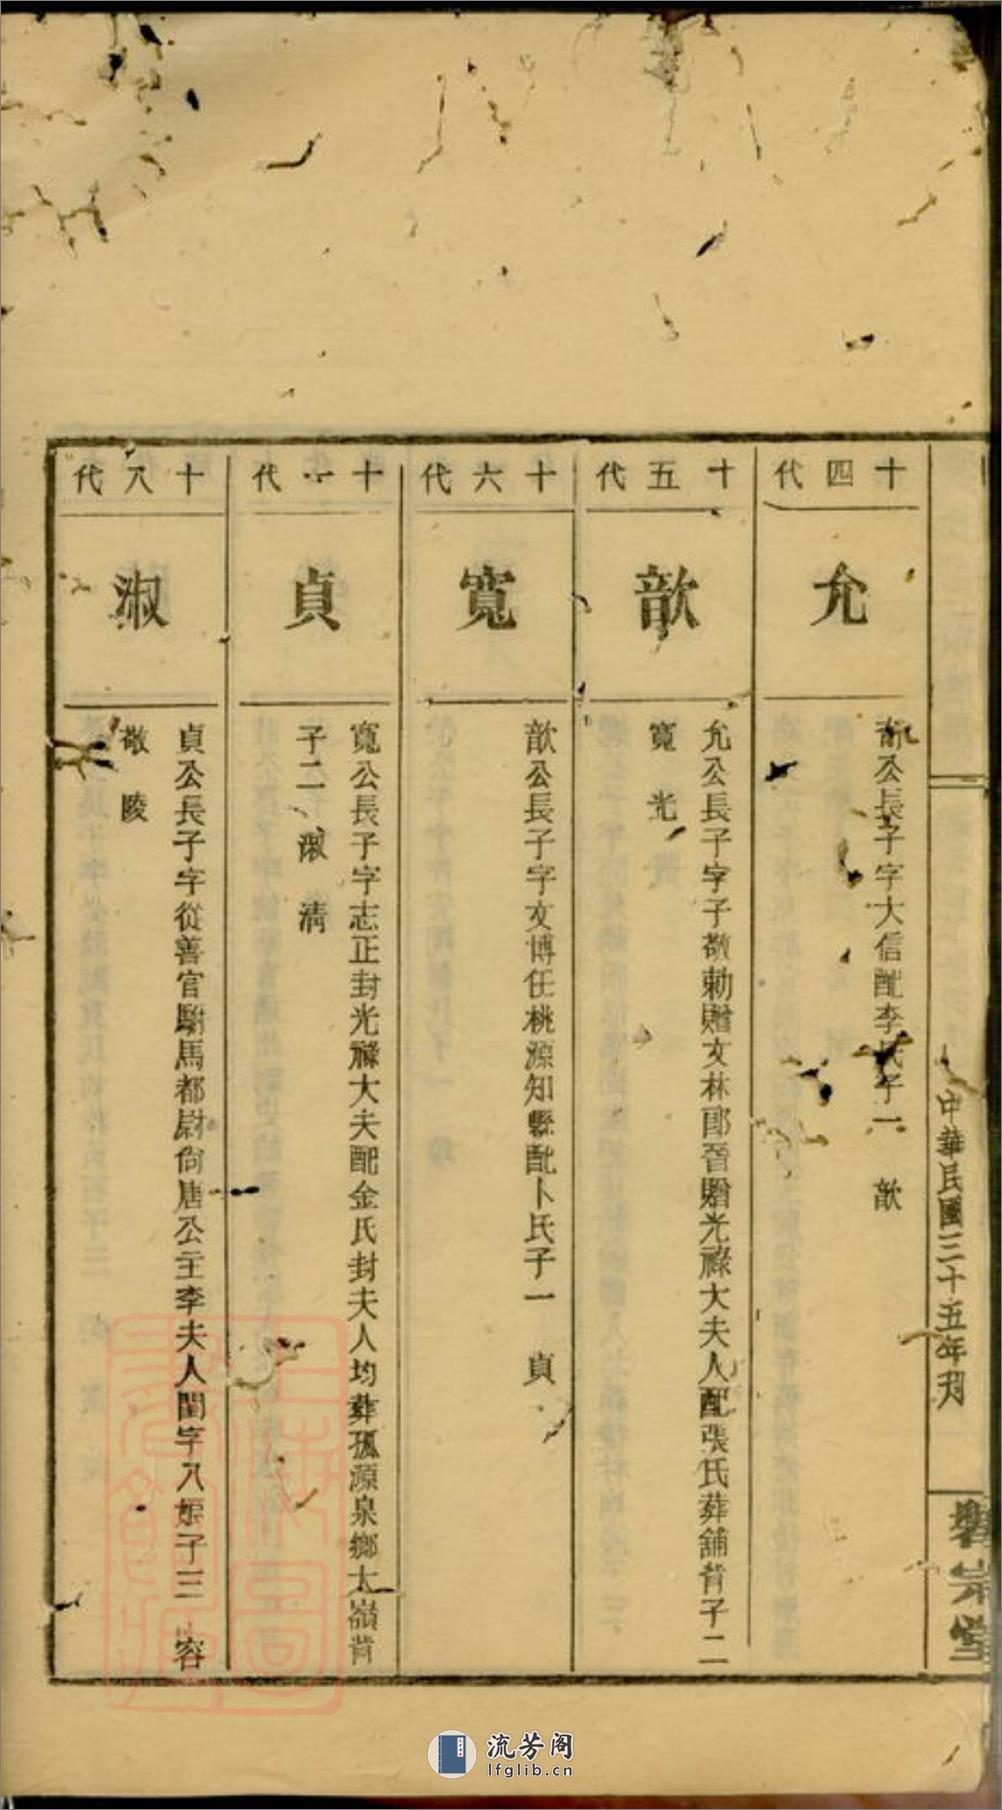 中華民國三十五年刊
十四代
允
公長子字大信配李氏子一 歆
十五代
歆
允公長子字子敬勅贈文林郎晉贈光祿大夫人配張氏葬舖背子二
寬 光
十六代
寬
歆公長子字文博任桃源知縣配卜氏子一 貞
十一代
貞
寬公長子字志正封光祿大夫配金氏封夫人均葬孤源泉鄉太嶺背
子二 淑 清
十八代
淑
貞公長子字從善官駙馬都尉尚唐公主李夫人閨字八娘子三 容
敬 陵
流芳阁
lfglib.cn